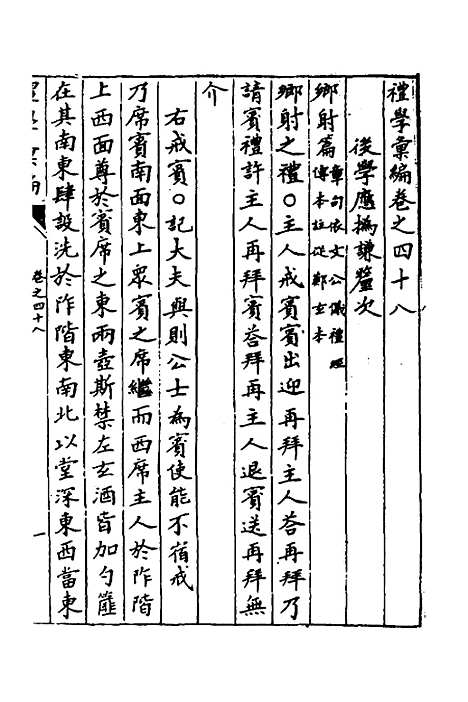 禮學彙編卷之四十八
後學應撝謙釐次
鄉射篇章句依文公儀禮經
傳本註從鄭玄本
鄉射之禮○主人戒賓賓出迎再拜主人荅再拜乃
請賓禮許主人再拜賓荅拜再主人退賓送再拜無
介
右戒賓○記大夫與則公士為賓使能不宿戒
乃席賓南面東上眾賓之席繼而西席主人於阼階
上西面尊於賓席之東兩壺斯禁左玄酒皆加勺篚
在其南東肆設洗於阼階東南北以堂深東西當東
卷之四十八
一